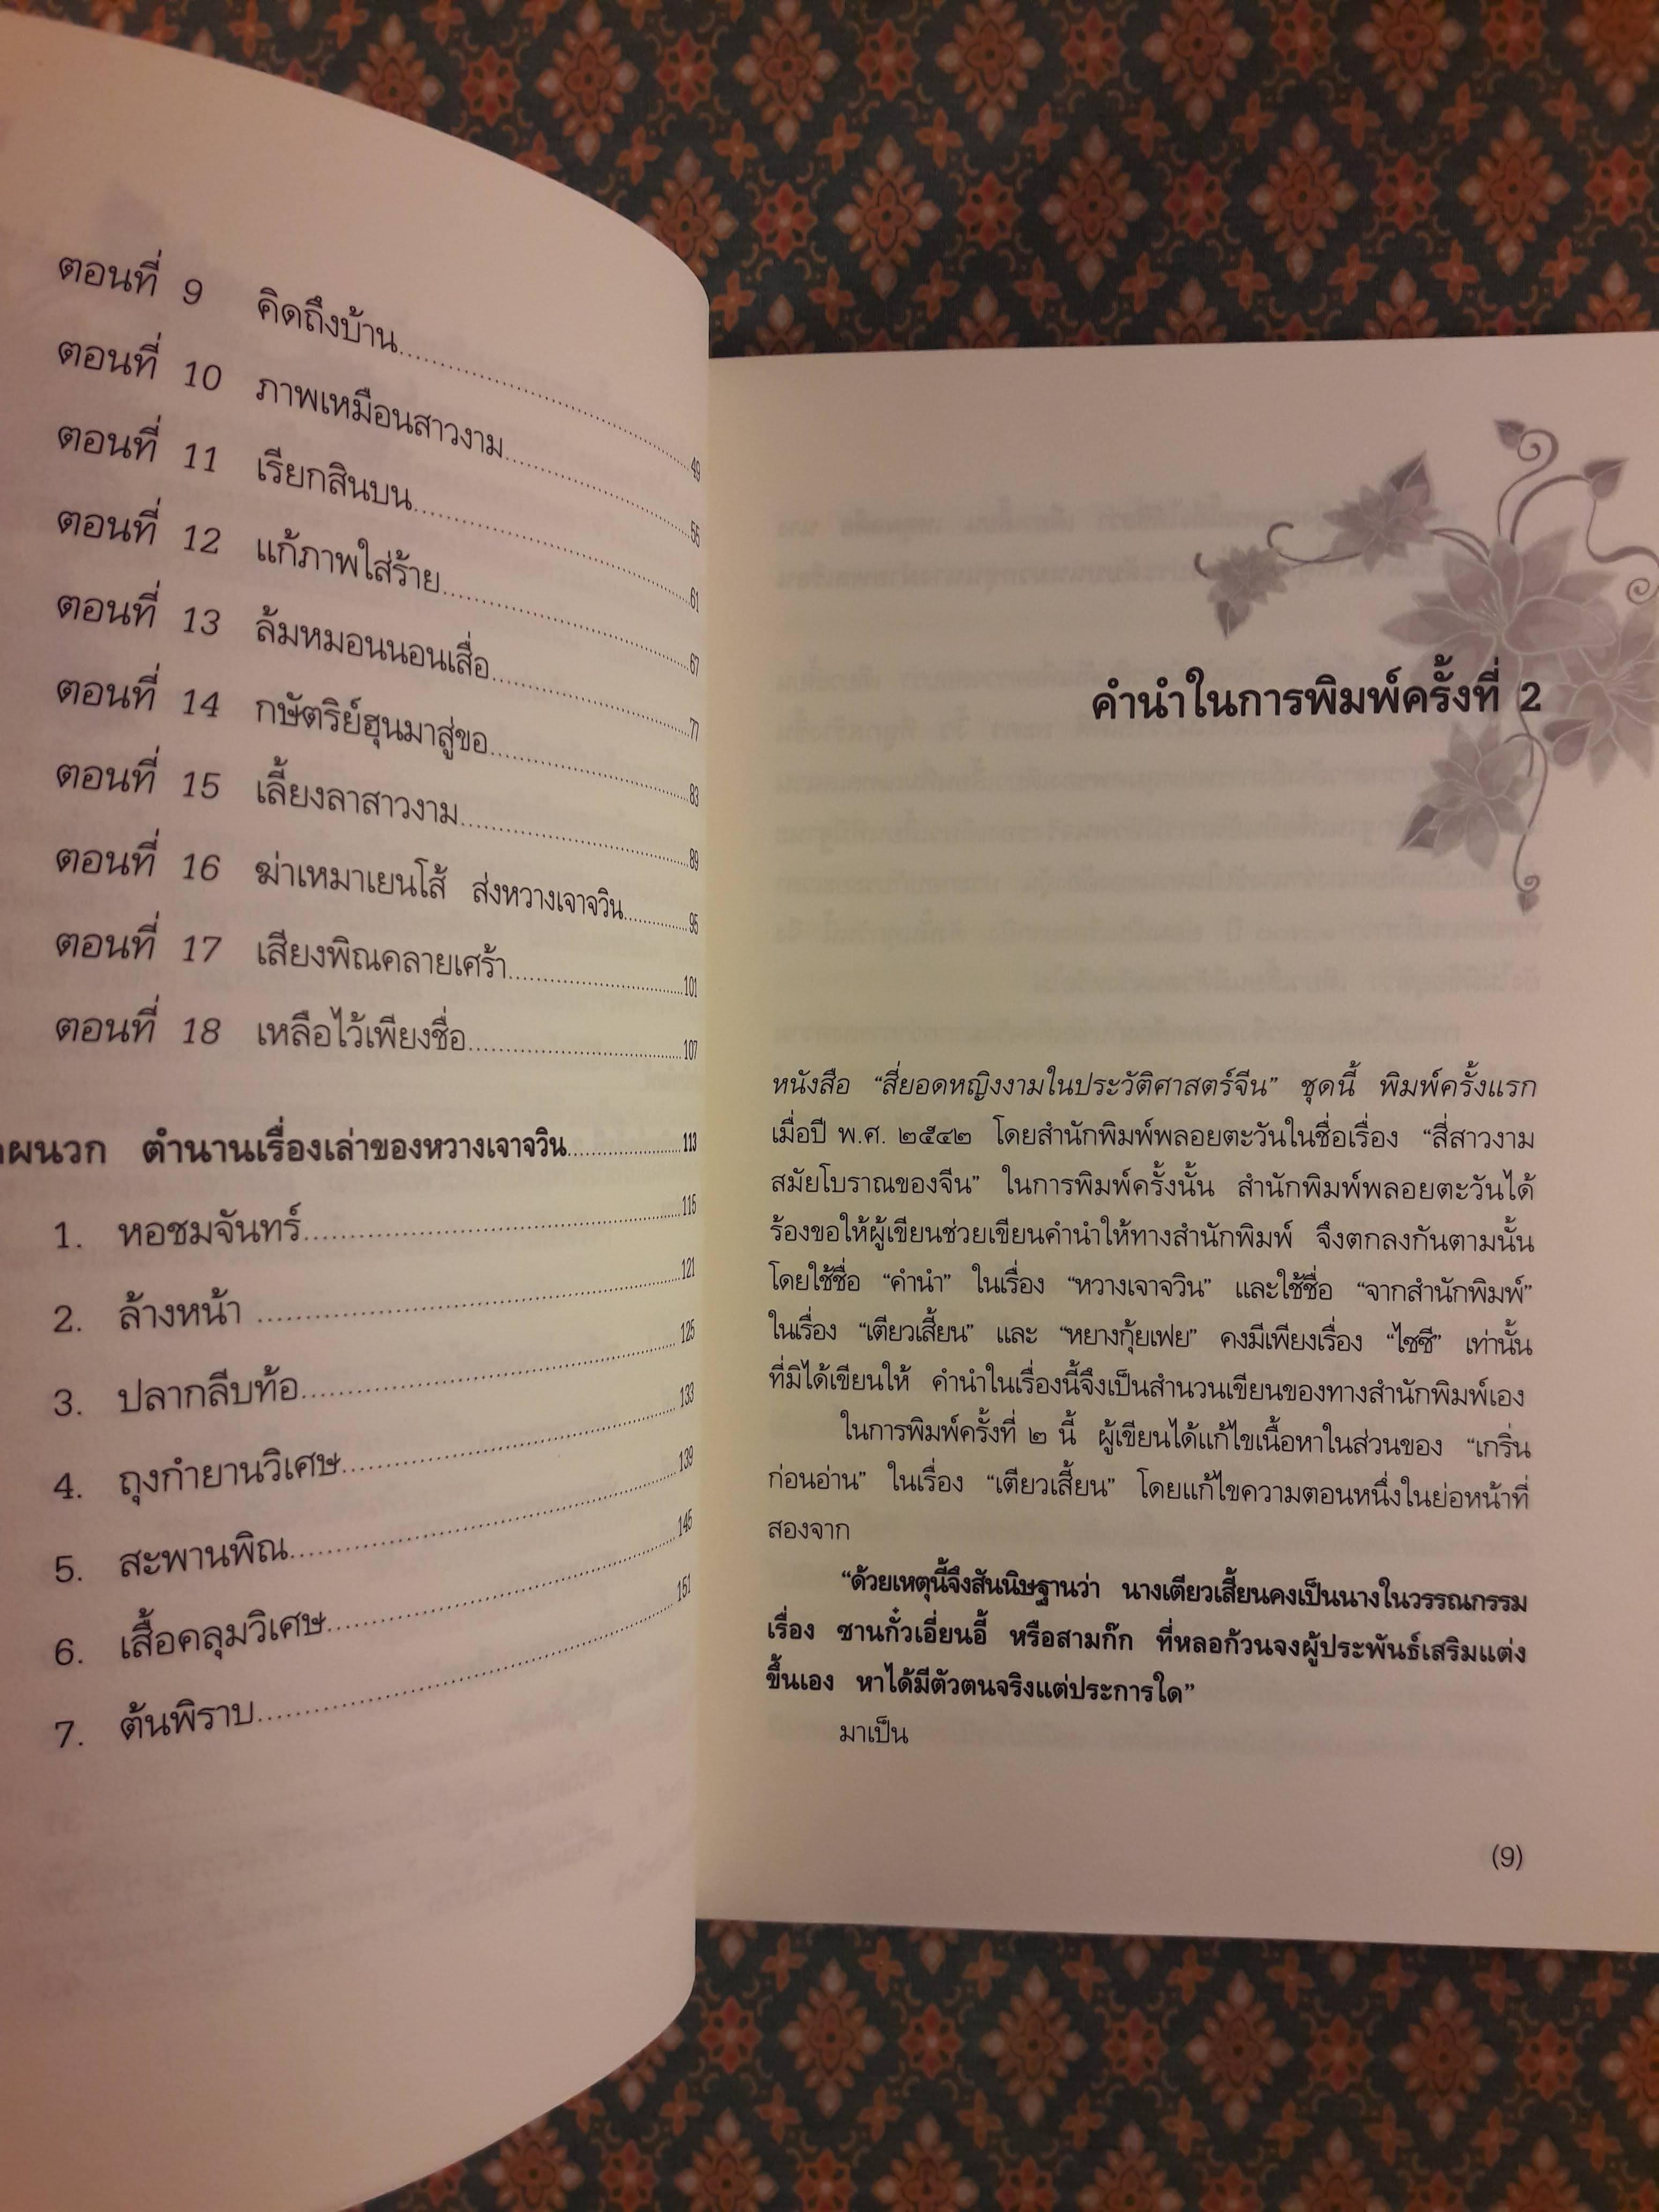 ตอนที่ 9 คิดถึงบ้าน..........49
ตอนที่ 10 ภาพเหมือนสาวงาม..........55
ตอนที่ 11 เรียกสินบน..........61
ตอนที่ 12 แก้ภาพใส่ร้าย..........67
ตอนที่ 13 ล้มหมอนนอนเสื่อ..........77
ตอนที่ 14 กษัตริย์ฮุนมาสู่ขอ..........83
ตอนที่ 15 เลี้ยงลาสาวงาม..........89
ตอนที่ 16 ฆ่าเหมาเยนโส้ ส่งหวางเจาจวิน..........95
ตอนที่ 17 เสียงพิณคลายเศร้า..........101
ตอนที่ 18 เหลือไว้เพียงชื่อ..........107
ผนวก ตำนานเรื่องเล่าของหวางเจาจวิน..........113
1. หอชมจันทร์..........115
2. ล้างหน้า..........121
3. ปลากลีบท้อ..........125
4. ถุงกำยานวิเศษ..........133
5. สะพานพิณ..........139
6. เสื้อคลุมวิเศษ..........145
7. ต้นพิราบ..........151
คำนำในการพิมพ์ครั้งที่ 2
หนังสือ “สี่ยอดหญิงงามในประวัติศาสตร์จีน” ชุดนี้ พิมพ์ครั้งแรก
เมื่อปี พ.ศ. ๒๕๔๒ โดยสำนักพิมพ์พลอยตะวันในชื่อเรื่อง “สี่สาวงาม
สมัยโบราณของจีน” ในการพิมพ์ครั้งนั้น สำนักพิมพ์พลอยตะวันได้
ร้องขอให้ผู้เขียนช่วยเขียนคำนำให้ทางสำนักพิมพ์ จึงตกลงกันตามนั้น
โดยใช้ชื่อ “คำนำ” ในเรื่อง “หวางเจาจวิน” และใช้ชื่อ “จากสำนักพิมพ์”
ในเรื่อง “เตียวเสี้ยน” และ “หยางกุ้ยเฟย” คงมีเพียงเรื่อง “ไซซี” เท่านั้น
ที่มิได้เขียนให้ คำนำในเรื่องนี้จึงเป็นสำนวนเขียนของทางสำนักพิมพ์เอง
ในการพิมพ์ครั้งที่ ๒ นี้ ผู้เขียนได้แก้ไขเนื้อหาในส่วนของ “เกริ่น
ก่อนอ่าน” ในเรื่อง “เตียวเสี้ยน” โดยแก้ไขความตอนหนึ่งในย่อหน้าที่
สองจาก
“ด้วยเหตุนี้จึงสันนิษฐานว่า นางเตียวเสี้ยนคงเป็นนางในวรรณกรรม
เรื่อง ซานกั๋วเอี่ยนอี้ หรือสามก๊ก ที่หลอก้วนจงผู้ประพันธ์เสริมแต่ง
ขึ้นเอง หาได้มีตัวตนจริงแต่ประการใด”
มาเป็น
(9)